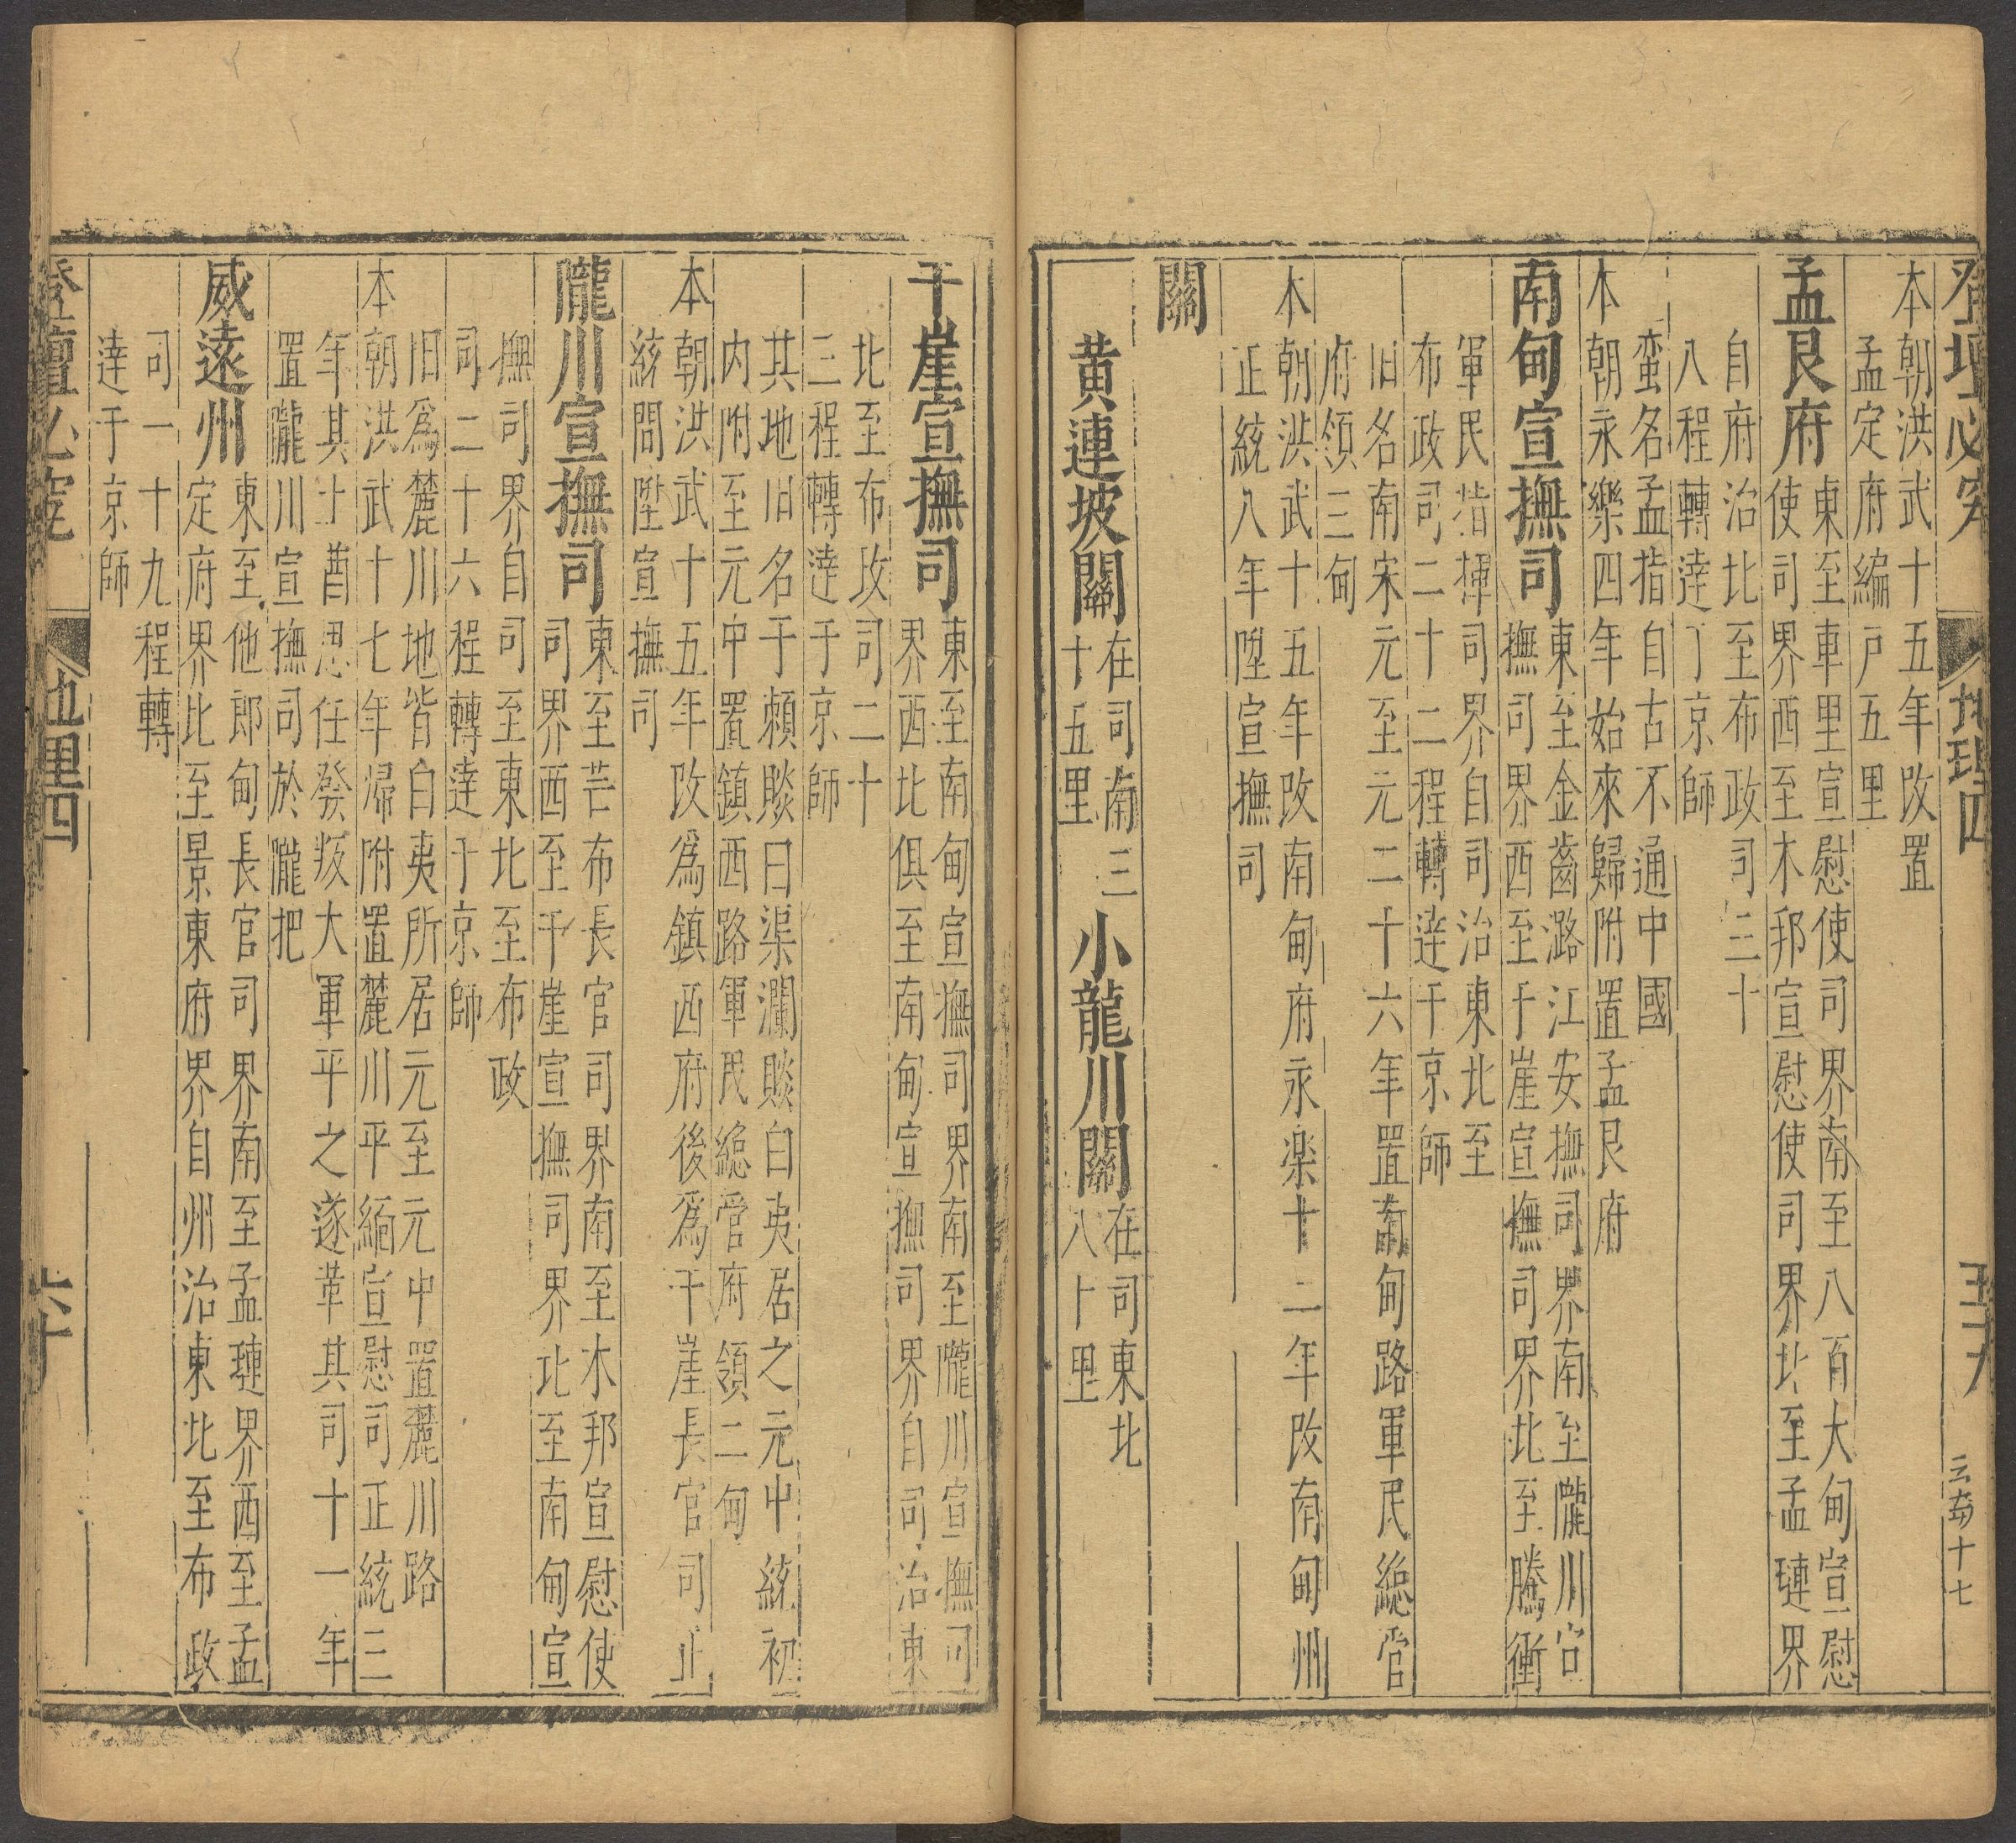 登壇必究
地理四
五十九
云南十七
本朝洪武十五年改置
孟定府編戸五里
孟艮府
東至車里宣慰使司界南至八百大甸宣慰
使司界西至木邦宣慰使司界北至孟璉界
自府治北至布政司三十
八程轉達丁京師
蛮名孟指自古不通中國
本朝永樂四年始來歸附置孟艮府
南甸宣撫司
東至金齒潞江安撫司界南至隴川宣
撫司界西至千崖宣撫司界北至騰衝
軍民指揮司界自司治東北至
布政司二十二程轉達于京師
旧名南宋元至元二十六年置南甸路軍民総官
府領三甸
本朝洪武十五年改南甸府永楽十二年改南甸州
正統八年陞宣撫司
關
黄連坡關
在司南三
十五里
小龍川關
在司東北
八十里
干崖宣撫司
東至南甸宣撫司界南至隴川宣撫司
界西北俱至南甸宣撫司界自司治東
北至布政司二十
三程轉達于京師
其地旧名于頼賧曰渠瀾賧白夷居之元中統初
内附至元中置鎮西路軍民緫管府領二甸
本朝洪武十五年改爲鎮西府後爲干崖長官司正
統間陞宣撫司
隴川宣撫司
東至芒布長官司界南至木邦宣慰使
司界西至千崖宣撫司界北至南甸宣
撫司界自司至東北至布政
司二十六程轉達于京師
旧爲麓川地皆白夷所居元至元中置麓川路
本朝洪武十七年歸附置麓川平緬宣慰司正統三
年其土酋思任發叛大軍平之遂革其司十一年
置隴川宣撫司於隴把
威遠州
東至他郎甸長官司界南至孟璉界西至孟
定府界北至景東府界自州治東北至布政
司一十九程轉
達于京師
登壇必究
地理四
六十